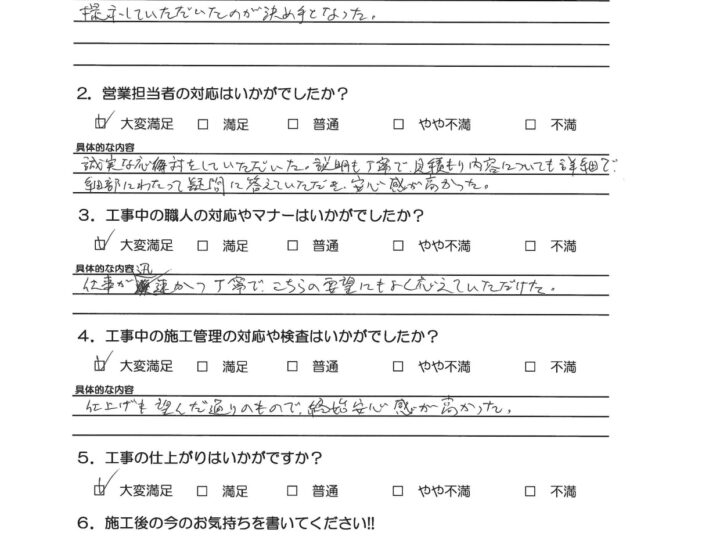 提示していただいたのが決め手となった。
2. 営業担当者の対応はいかがでしたか？
☑ 大変満足 □ 満足 □ 普通 □ やや不満 □ 不満
具体的な内容
誠実な応対をしていただいた。説明も丁寧で、見積もり内容についても詳細で、
細部にわたって疑問に答えていただき、安心感が高かった。
3. 工事中の職人の対応やマナーはいかがでしたか？
☑ 大変満足 □ 満足 □ 普通 □ やや不満 □ 不満
具体的な内容
仕事が迅速かつ丁寧で、こちらの要望にもよく応えていただけた。
4. 工事中の施工管理の対応や検査はいかがでしたか？
☑ 大変満足 □ 満足 □ 普通 □ やや不満 □ 不満
具体的な内容
仕上げも望んだ通りのもので、終始安心感が高かった。
5. 工事の仕上がりはいかがですか？
☑ 大変満足 □ 満足 □ 普通 □ やや不満 □ 不満
6. 施工後の今のお気持ちを書いてください!!